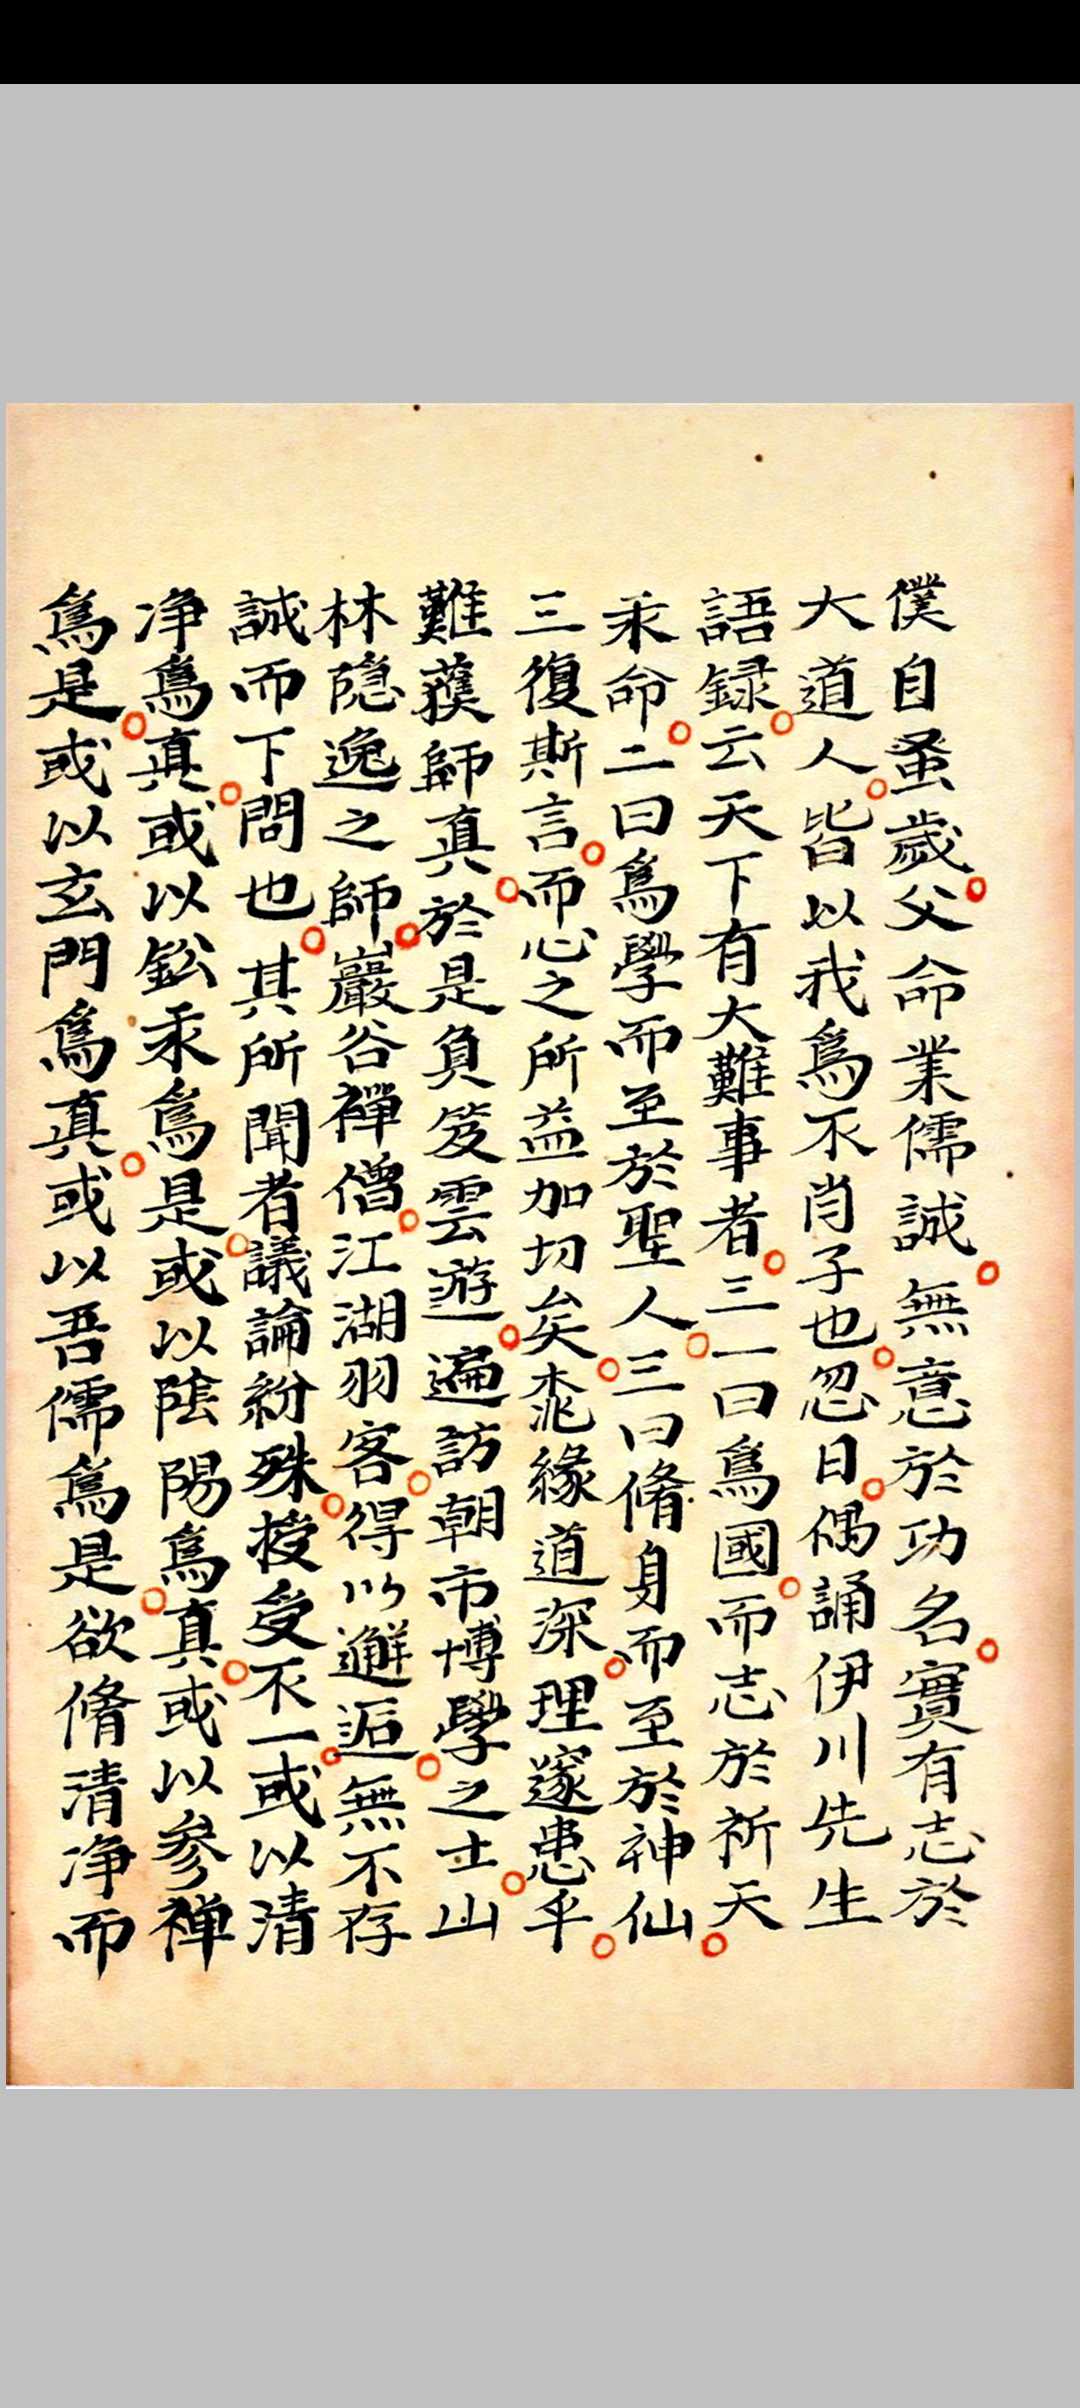 僕自蚤歲父命業儒誠無意於功名實有志於
大道人皆以我爲不肖子也忽日偶誦伊川先生
語録云天下有大難事者三一曰爲國而志於祈天
永命二曰爲學而至於聖人三曰脩身而至於神仙
三復斯言而心之所益加切矣柰緣道深理邃患乎
難蔟師真於是負笈雲遊遍訪朝市博學之士山
林隐逸之師巖谷禪僧江湖羽客得以邂逅無不存
誠而下問也其所聞者議論紛殊授受不一或以清
净爲真或以鈆汞爲是或以陰陽爲真或以參禅
爲是或以玄門爲真或以吾儒爲是欲脩清净而